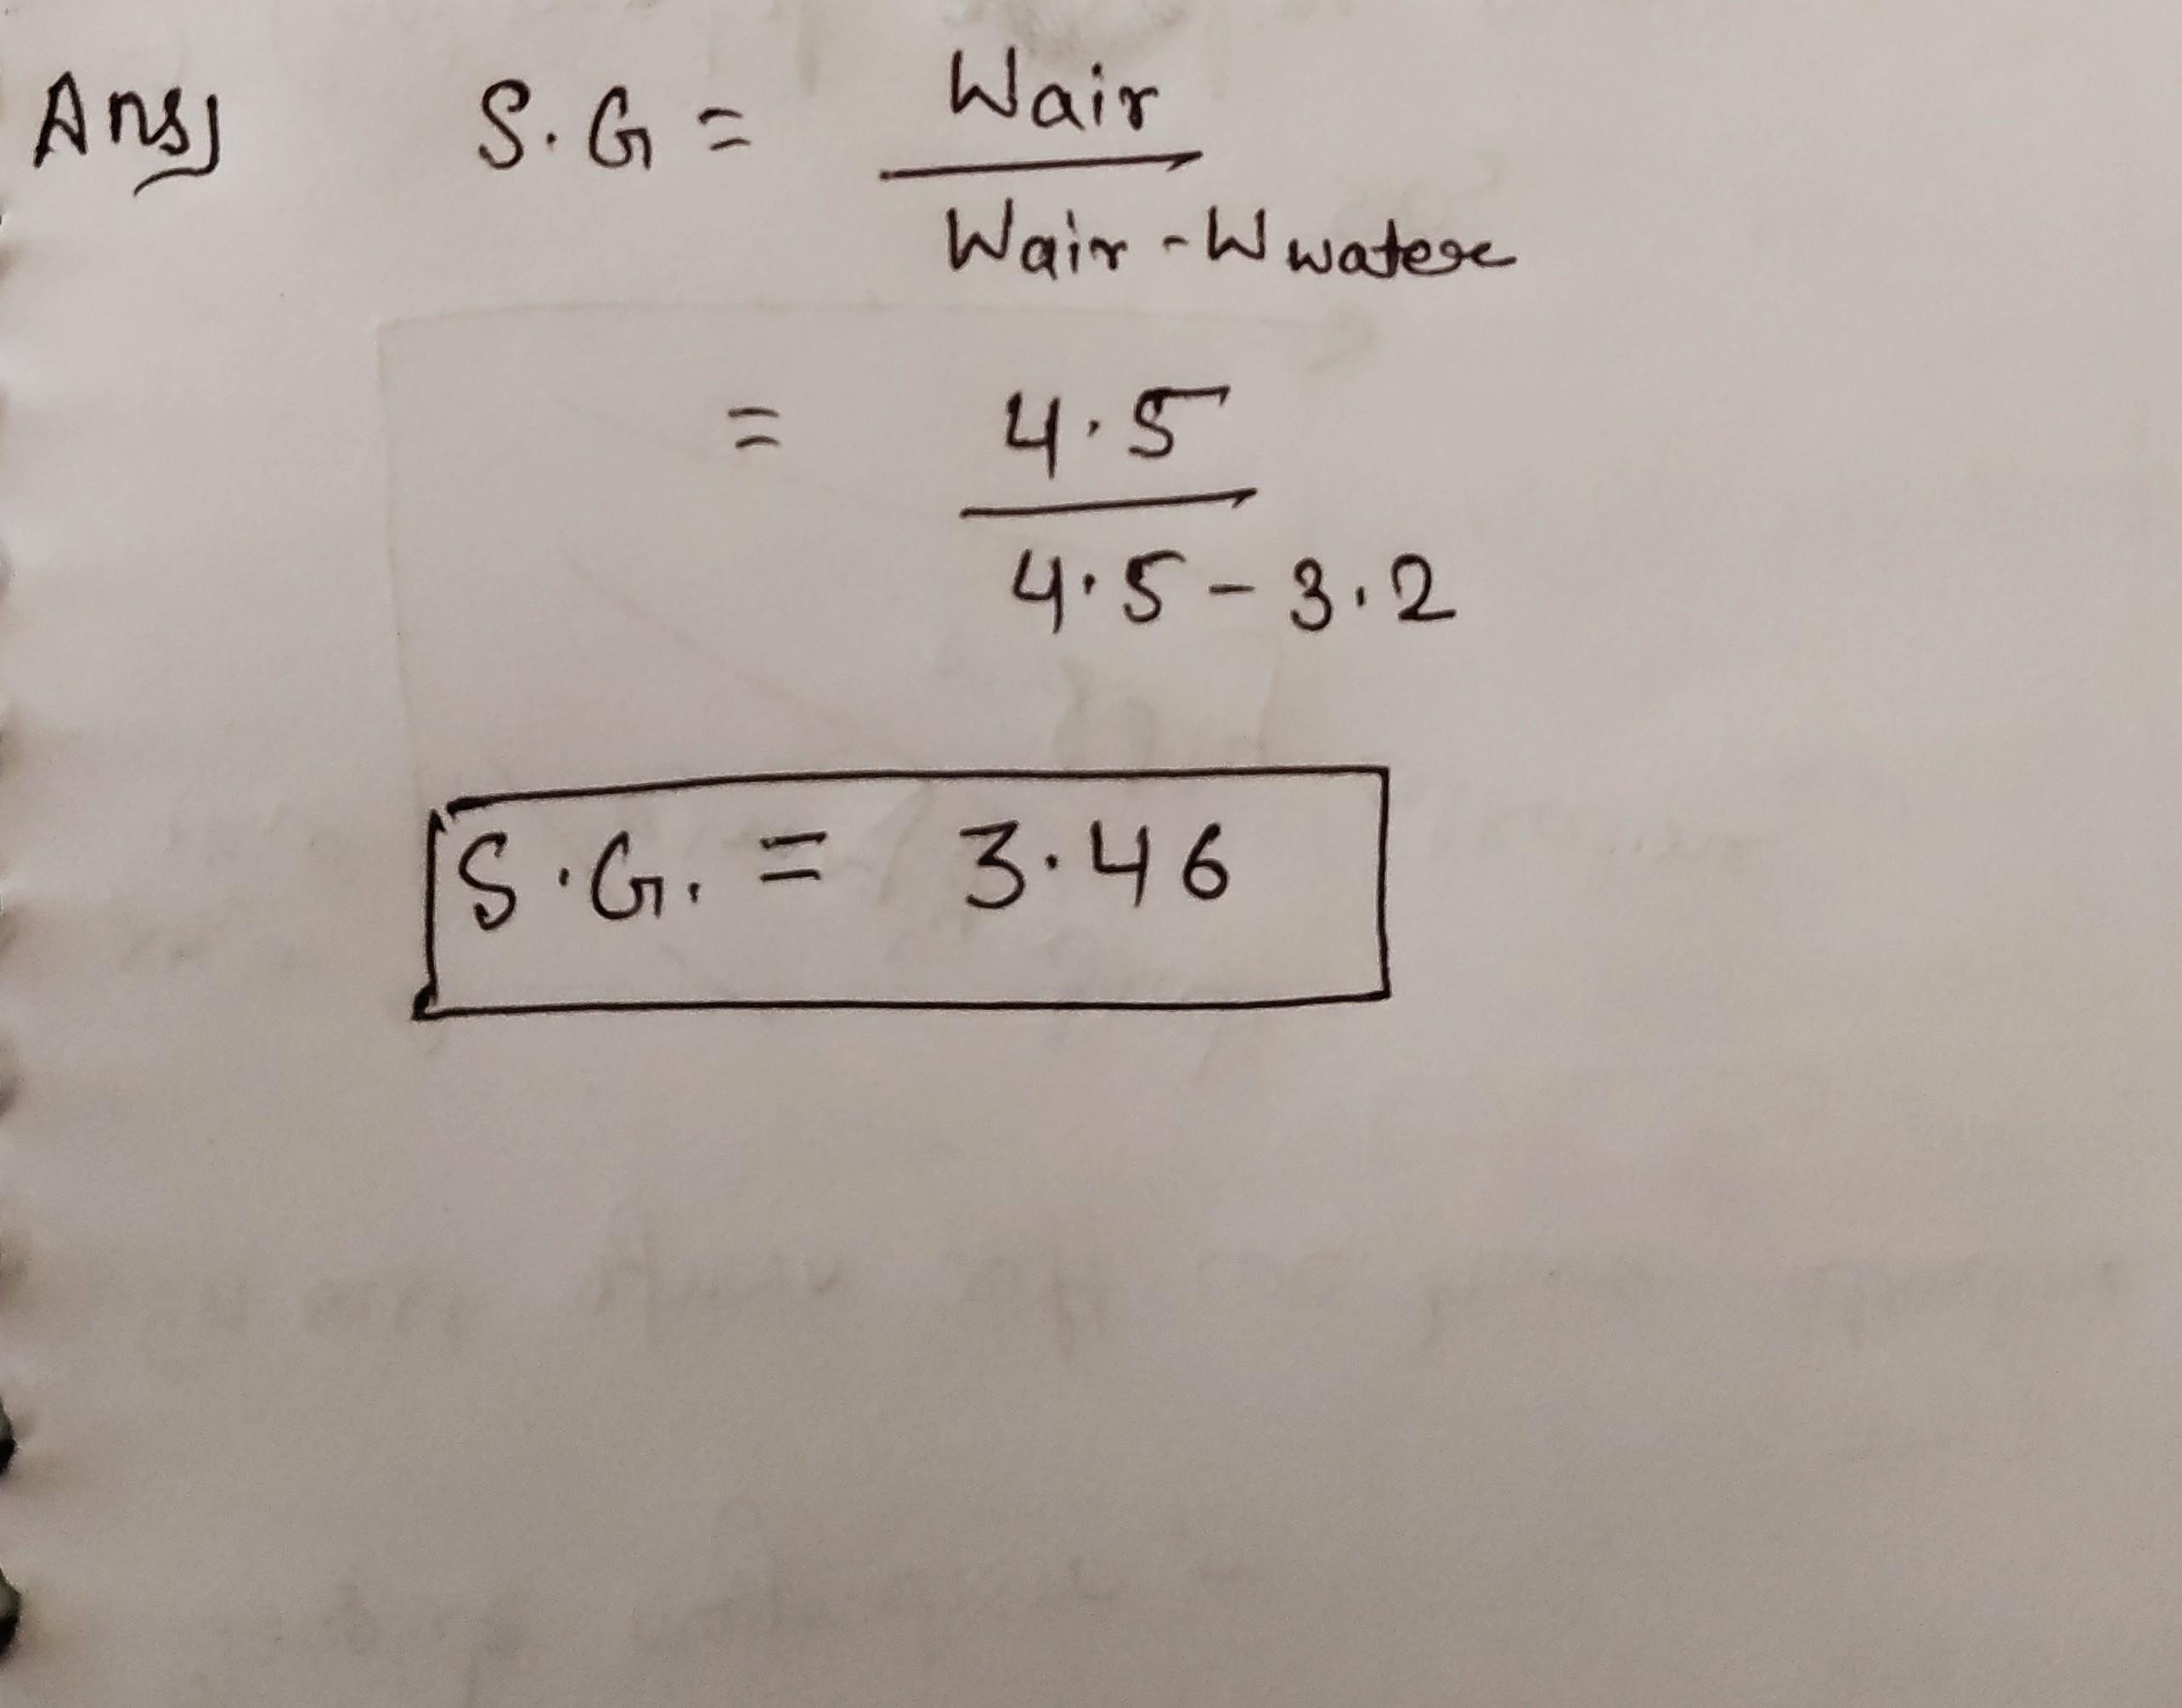 Ans) S.G = Wair
Wair - Wwater
= 4.5
4.5 - 3.2
S.G. = 3.46